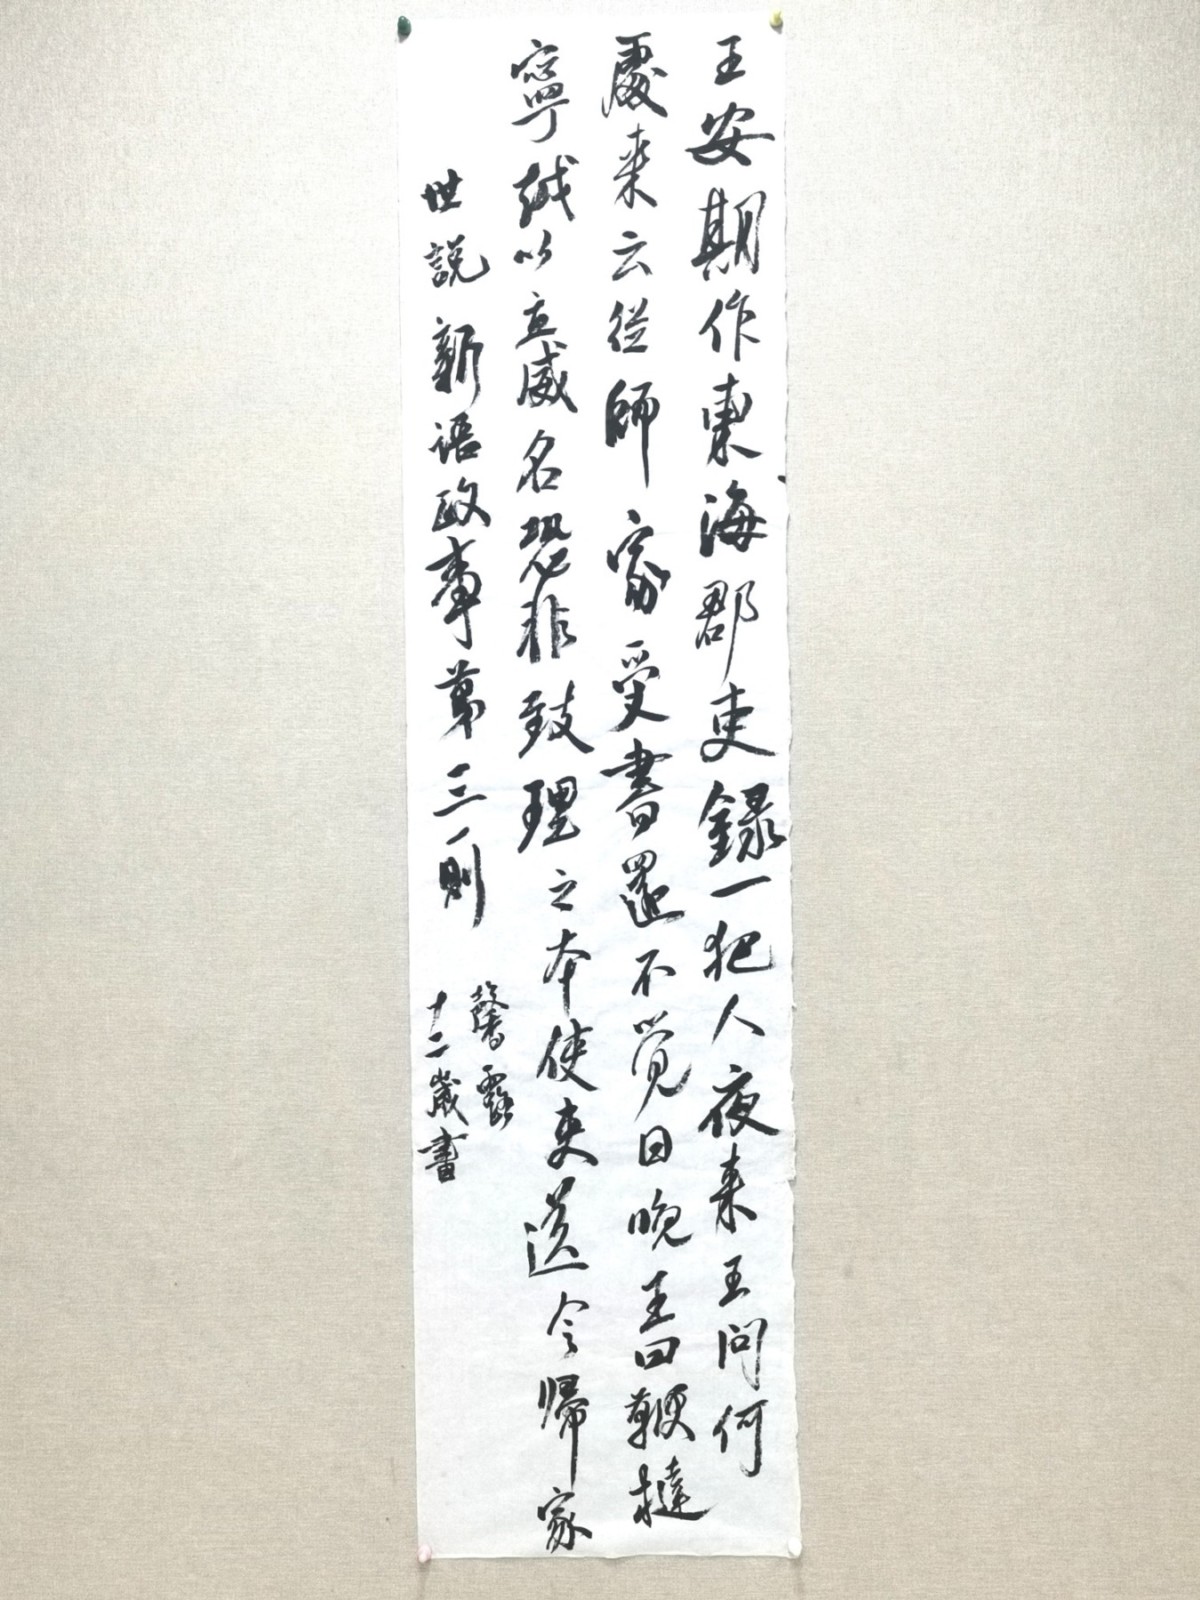 王安期作東海郡吏録一犯人夜来王問何
處来云從師家受書還不覺日晚王曰鞭撻
寧越以立威名恐非致理之本使吏送令歸家
世説新語政事第三則
馨露
十二歲書